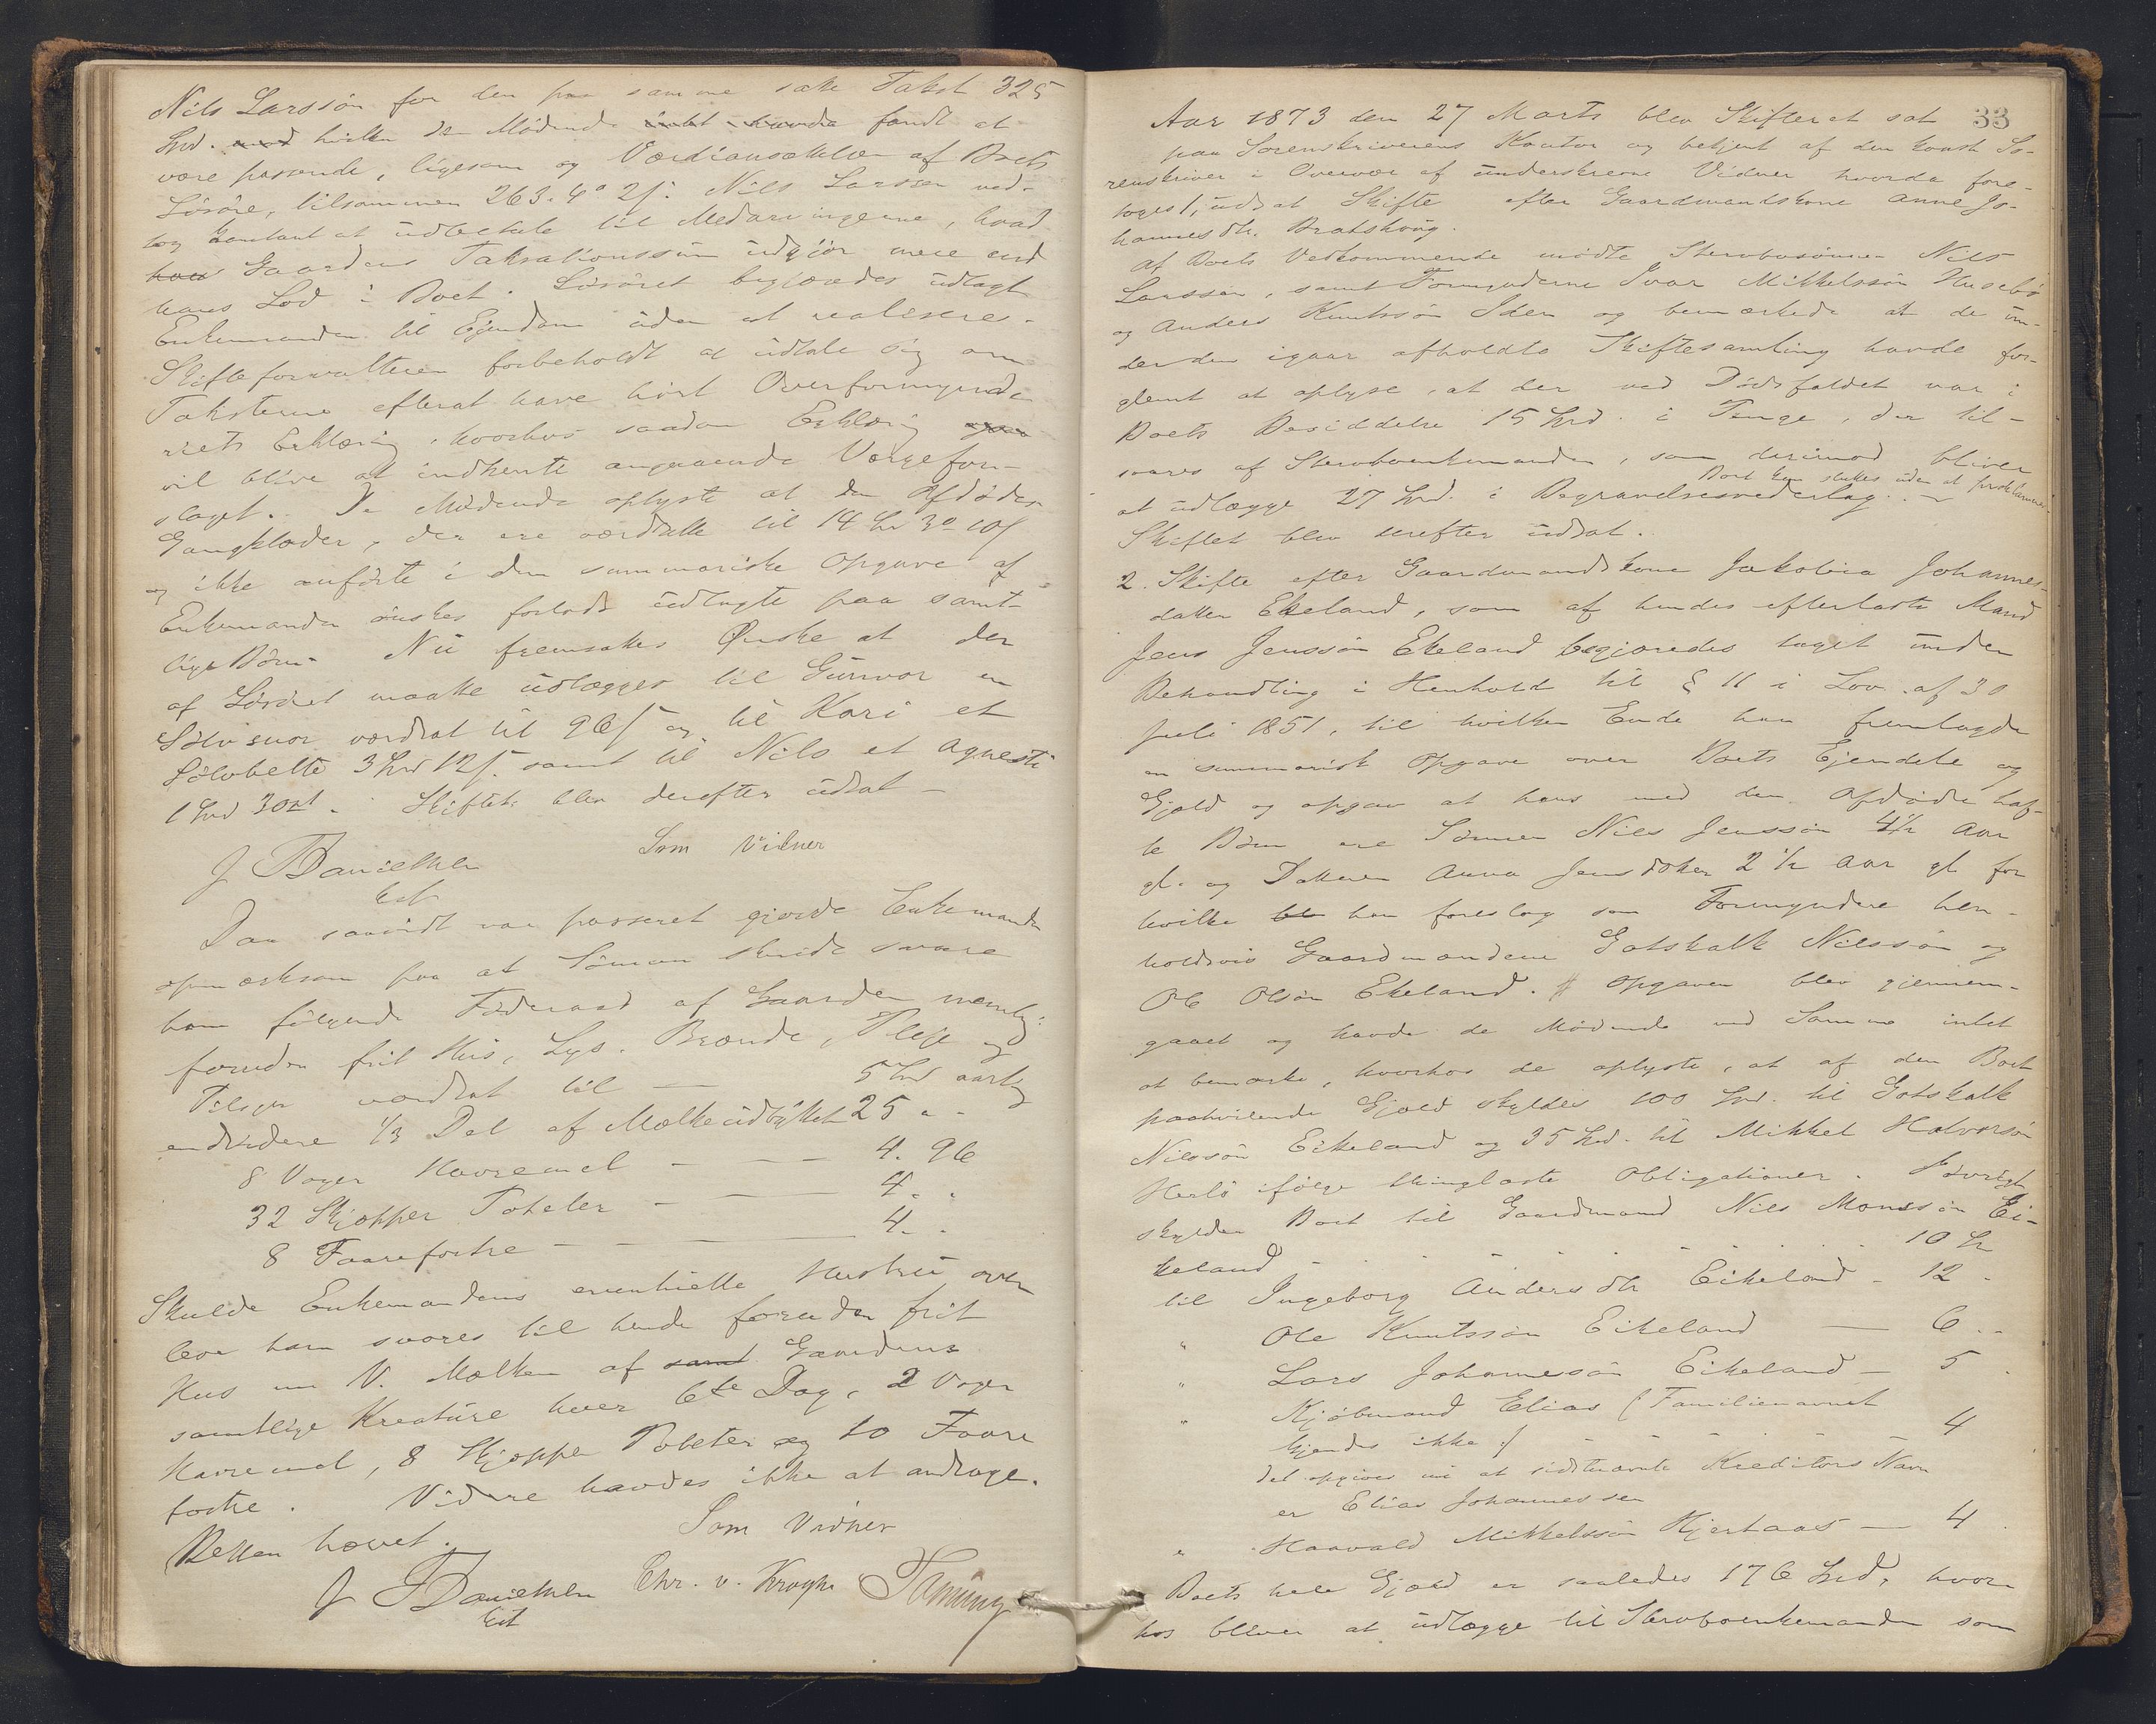 Nils Larssön for den paa samme satte Takst 325
Spd. med hvilken de Mödende intet havde fandt at
være passende, ligesom og Værdiansættelsen af Boets
Lösöre, tilsammen 263. 4 ort 2 s. Nils Larssen ved-
tog kontant at udbetale til Medarvingerne, hvad
hans Gaardens Taksationssum udgjör mere end
hans Lod i Boet. Lösöret begjæredes udlagt
Enkemanden til Ejendom uden at realiseres.
Skifteforvalteren forbeholdt at udtale sig om
Taksterne efterat have hört Overformynde-
riets Erklæring, hvorhos saadan Erklæring
vil blive at indhente angaaende Værgefor-
slaget. De Mödende oplyste at den Afdödes
Gangklæder, der ere værdsatte til 14 Spd 3 ort 10 s
og ikke anförte i den summariske Opgave af
Enkemanden önskes forlods udlagte paa samt-
lige Börn. Nu fremsattes Önske at der
af Lösöret maatte udlægges til Gunvor en
Sölvsnor værdsat til 96 s og til Kari et
Sölvbelte 3 Spd 12 s. samt til Nils et Agnesti
1 Spd 3 ort. Skiftet blev derefter udsat –
Som Vidner
J T Danielsen
Cst
Da saavidt var passeret gjorde Enkemanden
opmærksom paa at Sönnen skulde svare
ham fölgende Föderaad af Gaarden nemlig:
foruden frit Hus, Lys. Brænde, Pleje og
Tilsyn værdsat til — 5 Spd aarlig
endvidere 1/3 Del af Mælkeudbyttet 25 " "
8 Voger Havremel — — — 4. 96
32 Skjæpper Poteter — — — 4. .
8 Faarefostre — — — 4. .
Skulde Enkemandens eventuelle Hustru over-
leve ham svares til hende foruden frit
Hus m V. Mælken af samt Gaardens
samtlige Kreature hver 6te Dag, 2 Voger
Havremel, 8 Skjæpper Poteter og 10 Faare
fostre. Videre havdes ikke at andrage.
Retten hævet.
Som Vidner
J T Danielsen Chr. v. Krogh
Cst
33
Aar 1873 den 27 Marts blev Skifteret sat
paa Sorenskriverens Kontor og betjent af den konst. So-
renskriver i Overvær af underskrevne Vidner hvorda fore-
toges 1, udsat Skifte efter Gaardmandskone Anne Jo-
hannesdtr. Bratshoug.
Af Boets Vedkommende mödte Stervbosönnen Nils
Larssen, samt Formynderne Ivar Mikkelssön Husebö
og Anders Knutssön Iden og bemærkede at de un-
der den igaar afholdte Skiftesamling havde for-
glemt at oplyse, at der ved Dödsfaldet var i
Boets Besiddelse 15 Spd. i Penge, der til-
svares af Stervboenkemanden, som derimod bliver
at udlægge 27 Spd. i Begravelsesvederlag. Boet kan sluttes uden at proklamere.
Skiftet blev derefter udsat.
2. Skifte efter Gaardmandskone Jakobia Johannes-
datter Ekeland, som af hendes efterladte Mand
Jens Jenssön Ekeland begjæredes taget under
Behandling i Henhold til § 11 i Lov af 30
Juli 1851, til hvilken Ende han fremlagde
en summarisk Opgave over Boets Ejendele og
Gjæld og opgav at hans med den Afdöde haf-
te Börn ere Sönnen Nils Jenssön 4 1/2 Aar
gl. og Datteren Anna Jensdotter 2 1/2 Aar gl for
hvilke han foreslog som Formyndere hen-
holdsvis Gaardmændene Gotskalk Nilssön og
Ole Olsön Ekeland. Opgaven blev gjennem-
gaaet og havde de Mödende ved Samme intet
at bemærke, hvorhos de oplyste, at af den Boet
paahvilende Gjæld skyldes 100 Spd. til Gotskalk
Nilssön Eikeland og 35 Spd. til Mikkel Halvorsön
Herlö ifölge thinglæste Obligationer. Forövrigt
skylder Boet til Gaardmand Nils Monssön Ei-
keland — 10 Sp
til Ingeborg Andersdtr Eikeland – 12 –
" Ole Knutssön Eikeland — 6 . –
" Lars Johannesön Eikeland — 5 .
" Kjöbmand Elias (Familienavnet
kjendes ikke :/ 4
det opgives nu at sidstnævnte Kreditors Navn
er Elias Johannessen
" Haavald Mikkelssön Hjertaas — 4 .
Boets hele Gjæld er saaledes 176 Spd, hvor-
hos bliver at udlægge til Stervboenkemanden som